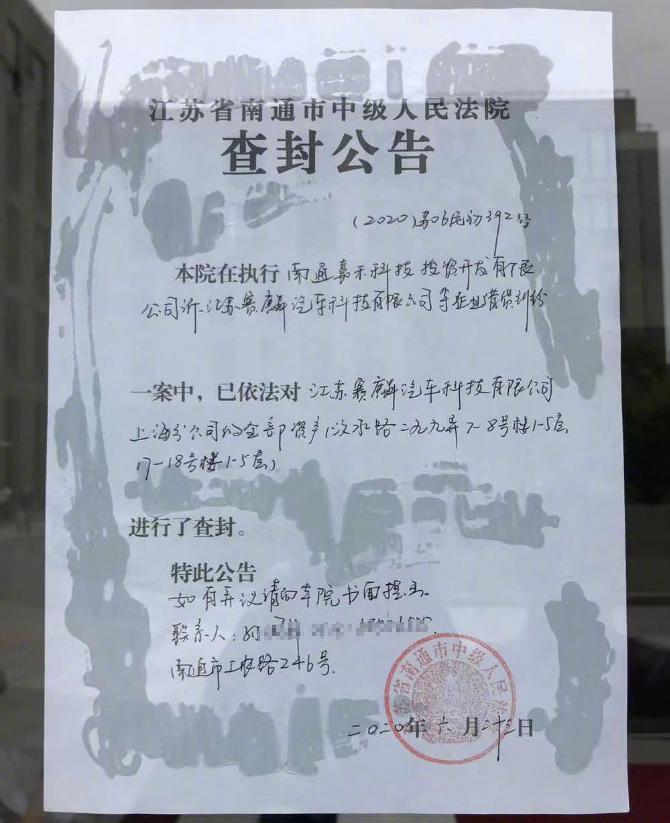 江苏省南通市中级人民法院
查封公告
(2020)苏06民初392号
本院在执行 南通嘉禾科技投资开发有限
公司诉江苏赛麟汽车科技有限公司等企业借贷纠纷
一案中，已依法对 江苏赛麟汽车科技有限公司
上海分公司的全部资产(汶水路二九九弄7-8号楼1-5层
17-18号楼1-5层)
进行了查封。
特此公告
如有异议请向本院书面提出
联系人:
南通市工农路246号.
省南通市中级人民法
二0二0年 六 月 二十三日